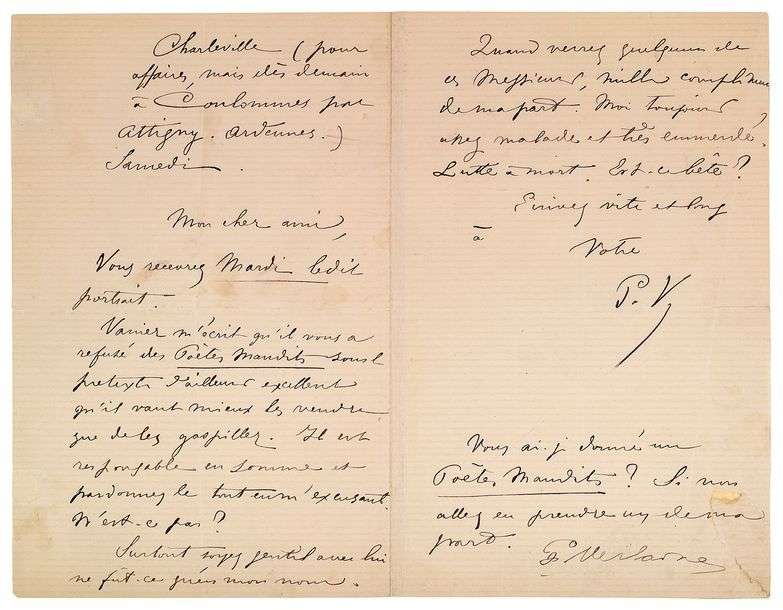 Charleville (pour
affaires, mais dès demain
à Coulommes par
Attigny. Ardennes.)
Samedi.
Mon cher ami,
Vous recevrez Mardi ledit
portrait.
Vanier m'écrit qu'il vous a
refusé des Poètes Maudits sous l
prétexte d'ailleurs excellent
qu'il vaut mieux les vendre
que de les gaspiller. Il est
responsable en somme et
pardonnez le tout en m'excusant.
N'est-ce pas?
Surtout soyez gentil avec lui
ne fût-ce qu'en mon nom.
Quand verrez quelqu'un de
ces Messieurs, mille complimens
de ma part. Moi toujours
assez malade et très emmerdé.
Lutte à mort. Est-ce bête?
Ecrivez vite et long
à
Votre
P. V
Vous ai-j donné un
Poètes Maudits? Si non
allez en prendre un de ma
part.
P Verlaine